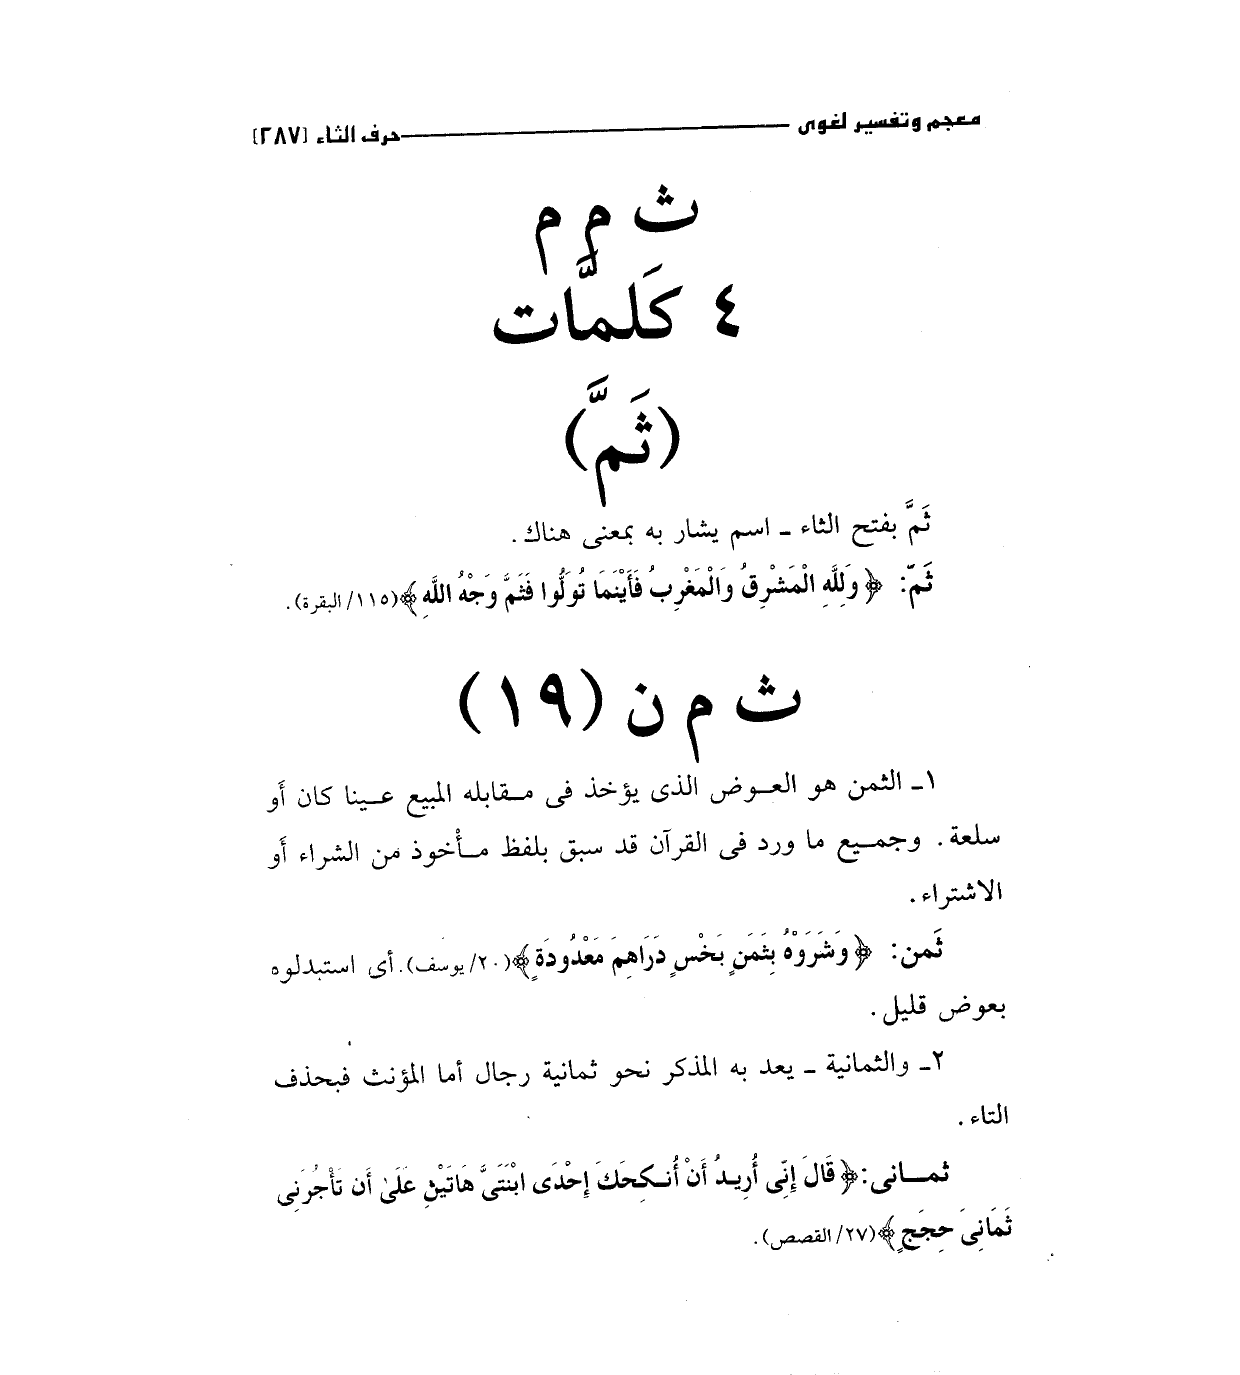 معجم وتفسير لغوى ــــــــــــــــــــ حرف الثاء [٢٨٧]
ث م م
٤ كَلمَّات
(ثَمَّ)
ثَمَّ بفتح الثاء ـ اسم يشار به بمعنى هناك.
ثَمّ: ﴿وَلِلَّهِ الْمَشْرِقُ وَالْمَغْرِبُ فَأَيْنَمَا تُوَلُّوا فَثَمَّ وَجْهُ اللَّهِ﴾ (١١٥/ البقرة).
ث م ن (١٩)
١ـ الثمن هو العوض الذى يؤخذ فى مقابله المبيع عينا كان أَو
سلعة. وجميع ما ورد فى القرآن قد سبق بلفظ مأْخوذ من الشراء أَو
الاشتراء.
ثَمن: ﴿وَشَرَوْهُ بِثَمَنٍ بَخْسٍ دَرَاهِمَ مَعْدُودَةٍ﴾ (٢٠/ يوسف). أى استبدلوه
بعوض قليل.
٢ـ والثمانية ـ يعد به المذكر نحو ثمانية رجال أما المؤنث فبحذف
التاء.
ثمانى: ﴿قَالَ إِنِّى أُرِيدُ أَنْ أُنكِحَكَ إِحْدَى ابْنَتَىَّ هَاتَيْنِ عَلَىٰ أَن تَأْجُرَنِى
ثَمَانِىَ حِجَجٍ﴾ (٢٧/ القصص).